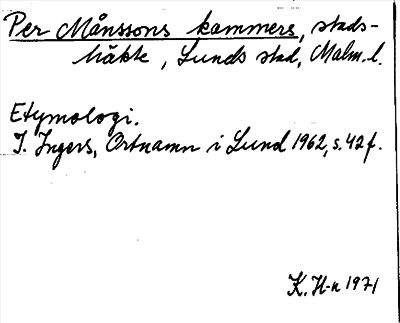 Per Månssons kammers, stads-
häkte, Lunds stad, Malm. l.
Etymologi.
I. Ingers, Ortnamn i Lund 1962, s. 42 f.
K. H-n 1971